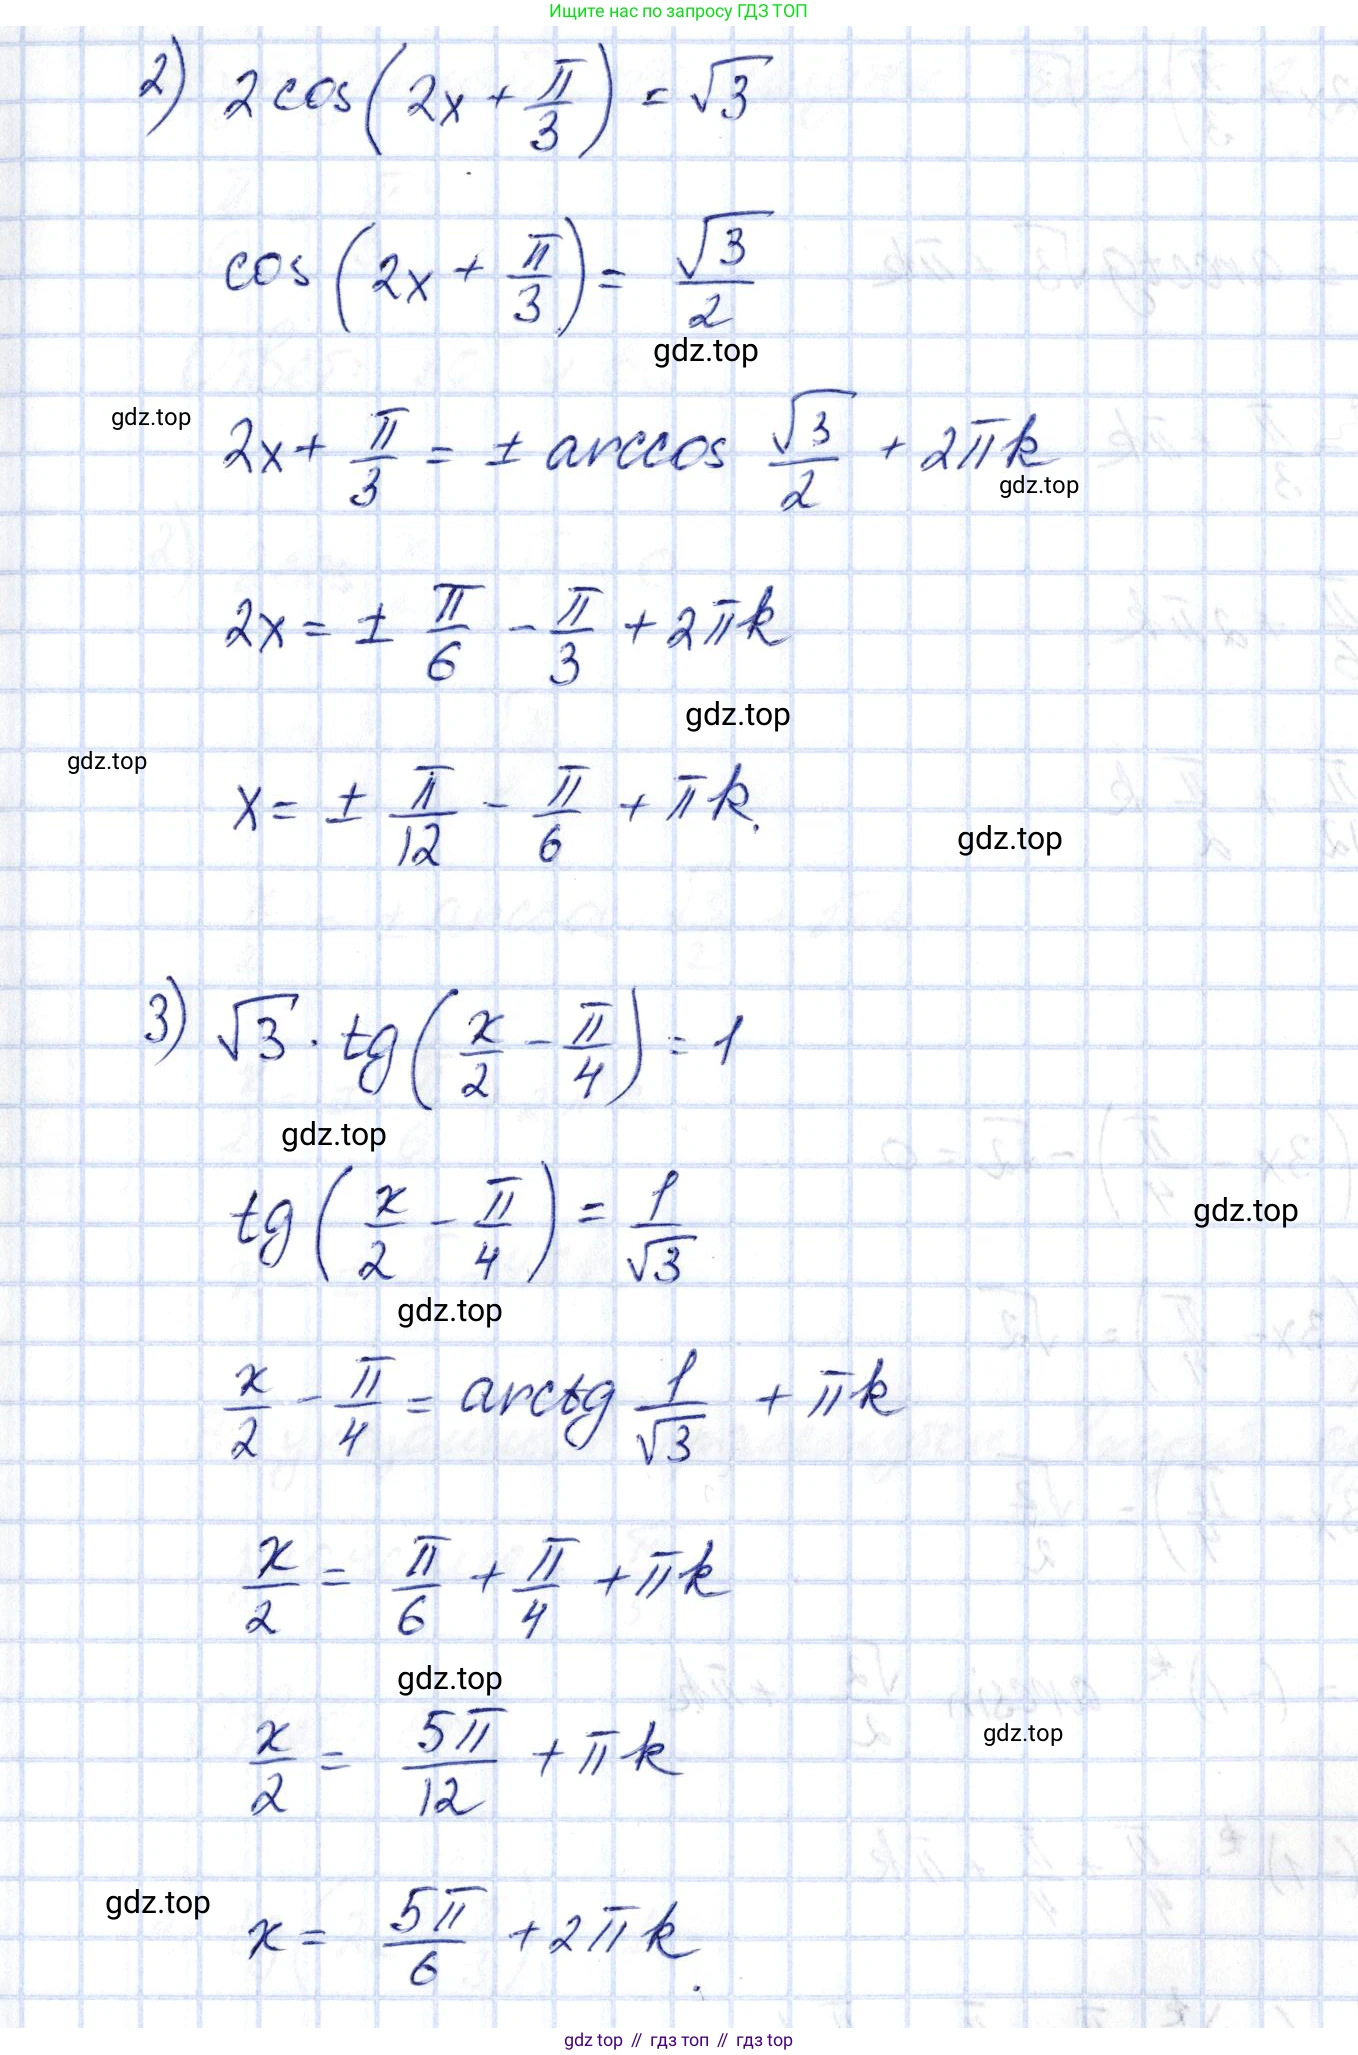 Ищите нас по запросу ГДЗ ТОП
2) 2cos(2x + π/3) = √3
cos(2x + π/3) = √3/2
gdz.top
gdz.top
2x + π/3 = ± arccos √3/2 + 2πk
gdz.top
2x = ± π/6 - π/3 + 2πk
gdz.top
gdz.top
x = ± π/12 - π/6 + πk.
gdz.top
3) √3 · tg(x/2 - π/4) = 1
gdz.top
tg(x/2 - π/4) = 1/√3
gdz.top
gdz.top
x/2 - π/4 = arctg 1/√3 + πk
x/2 = π/6 + π/4 + πk
gdz.top
x/2 = 5π/12 + πk
gdz.top
gdz.top
x = 5π/6 + 2πk.
gdz top // гдз топ // гдз top